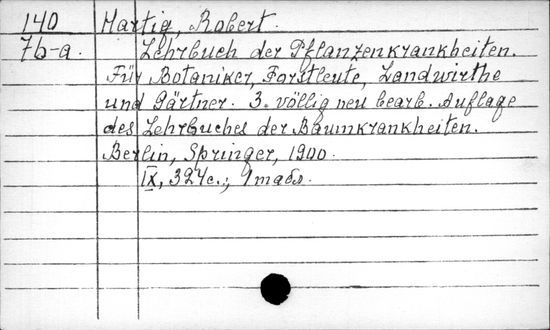 140 Hartig, Robert.
7b-a. Lehrbuch der Pflanzenkrankheiten.
Für Botaniker, Forstleute, Landwirthe
und Gärtner. 3. völlig neu bearb. Auflage
des Lehrbuches der Baumkrankheiten.
Berlin, Springer, 1900.
IX, 324c.;